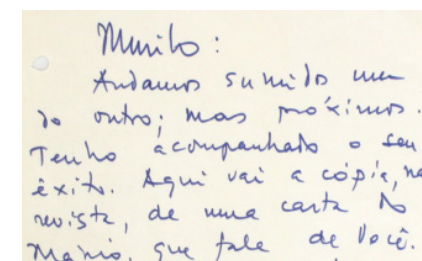 Murilo:
Andamos sumidos um
do outro; mas próximos.
Tenho acompanhado o seu
êxito. Aqui vai a cópia, na
revista, de uma carta do
Mário, que fala de Você.